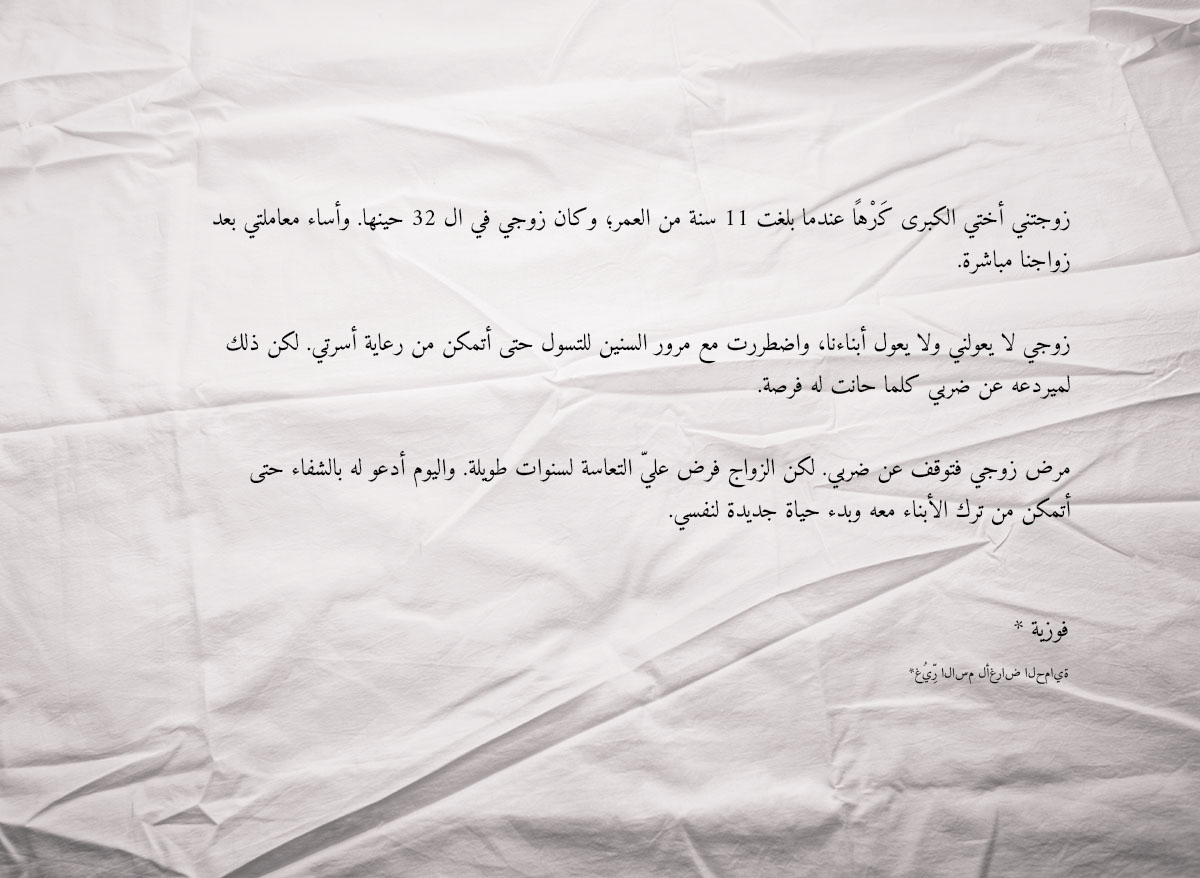 زوجتني أختي الكبرى كَرْهاً عندما بلغت 11 سنة من العمر؛ وكان زوجي في ال 32 حينها. وأساء معاملتي بعد
زواجنا مباشرة.
زوجي لا يعولني ولا يعول أبناءنا، واضطررت مع مرور السنين للتسول حتى أتمكن من رعاية أسرتي. لكن ذلك
لميردعه عن ضربي كلما حانت له فرصة.
مرض زوجي فتوقف عن ضربي. لكن الزواج فرض عليّ التعاسة لسنوات طويلة. واليوم أدعو له بالشفاء حتى
أتمكن من ترك الأبناء معه وبدء حياة جديدة لنفسي.
فوزية *
*غُيِّر الاسم لأغراض الحماية